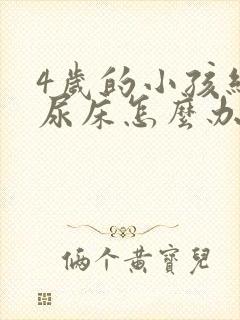 4歲的小孩經
尿床怎麼办
俩个黄寶兒